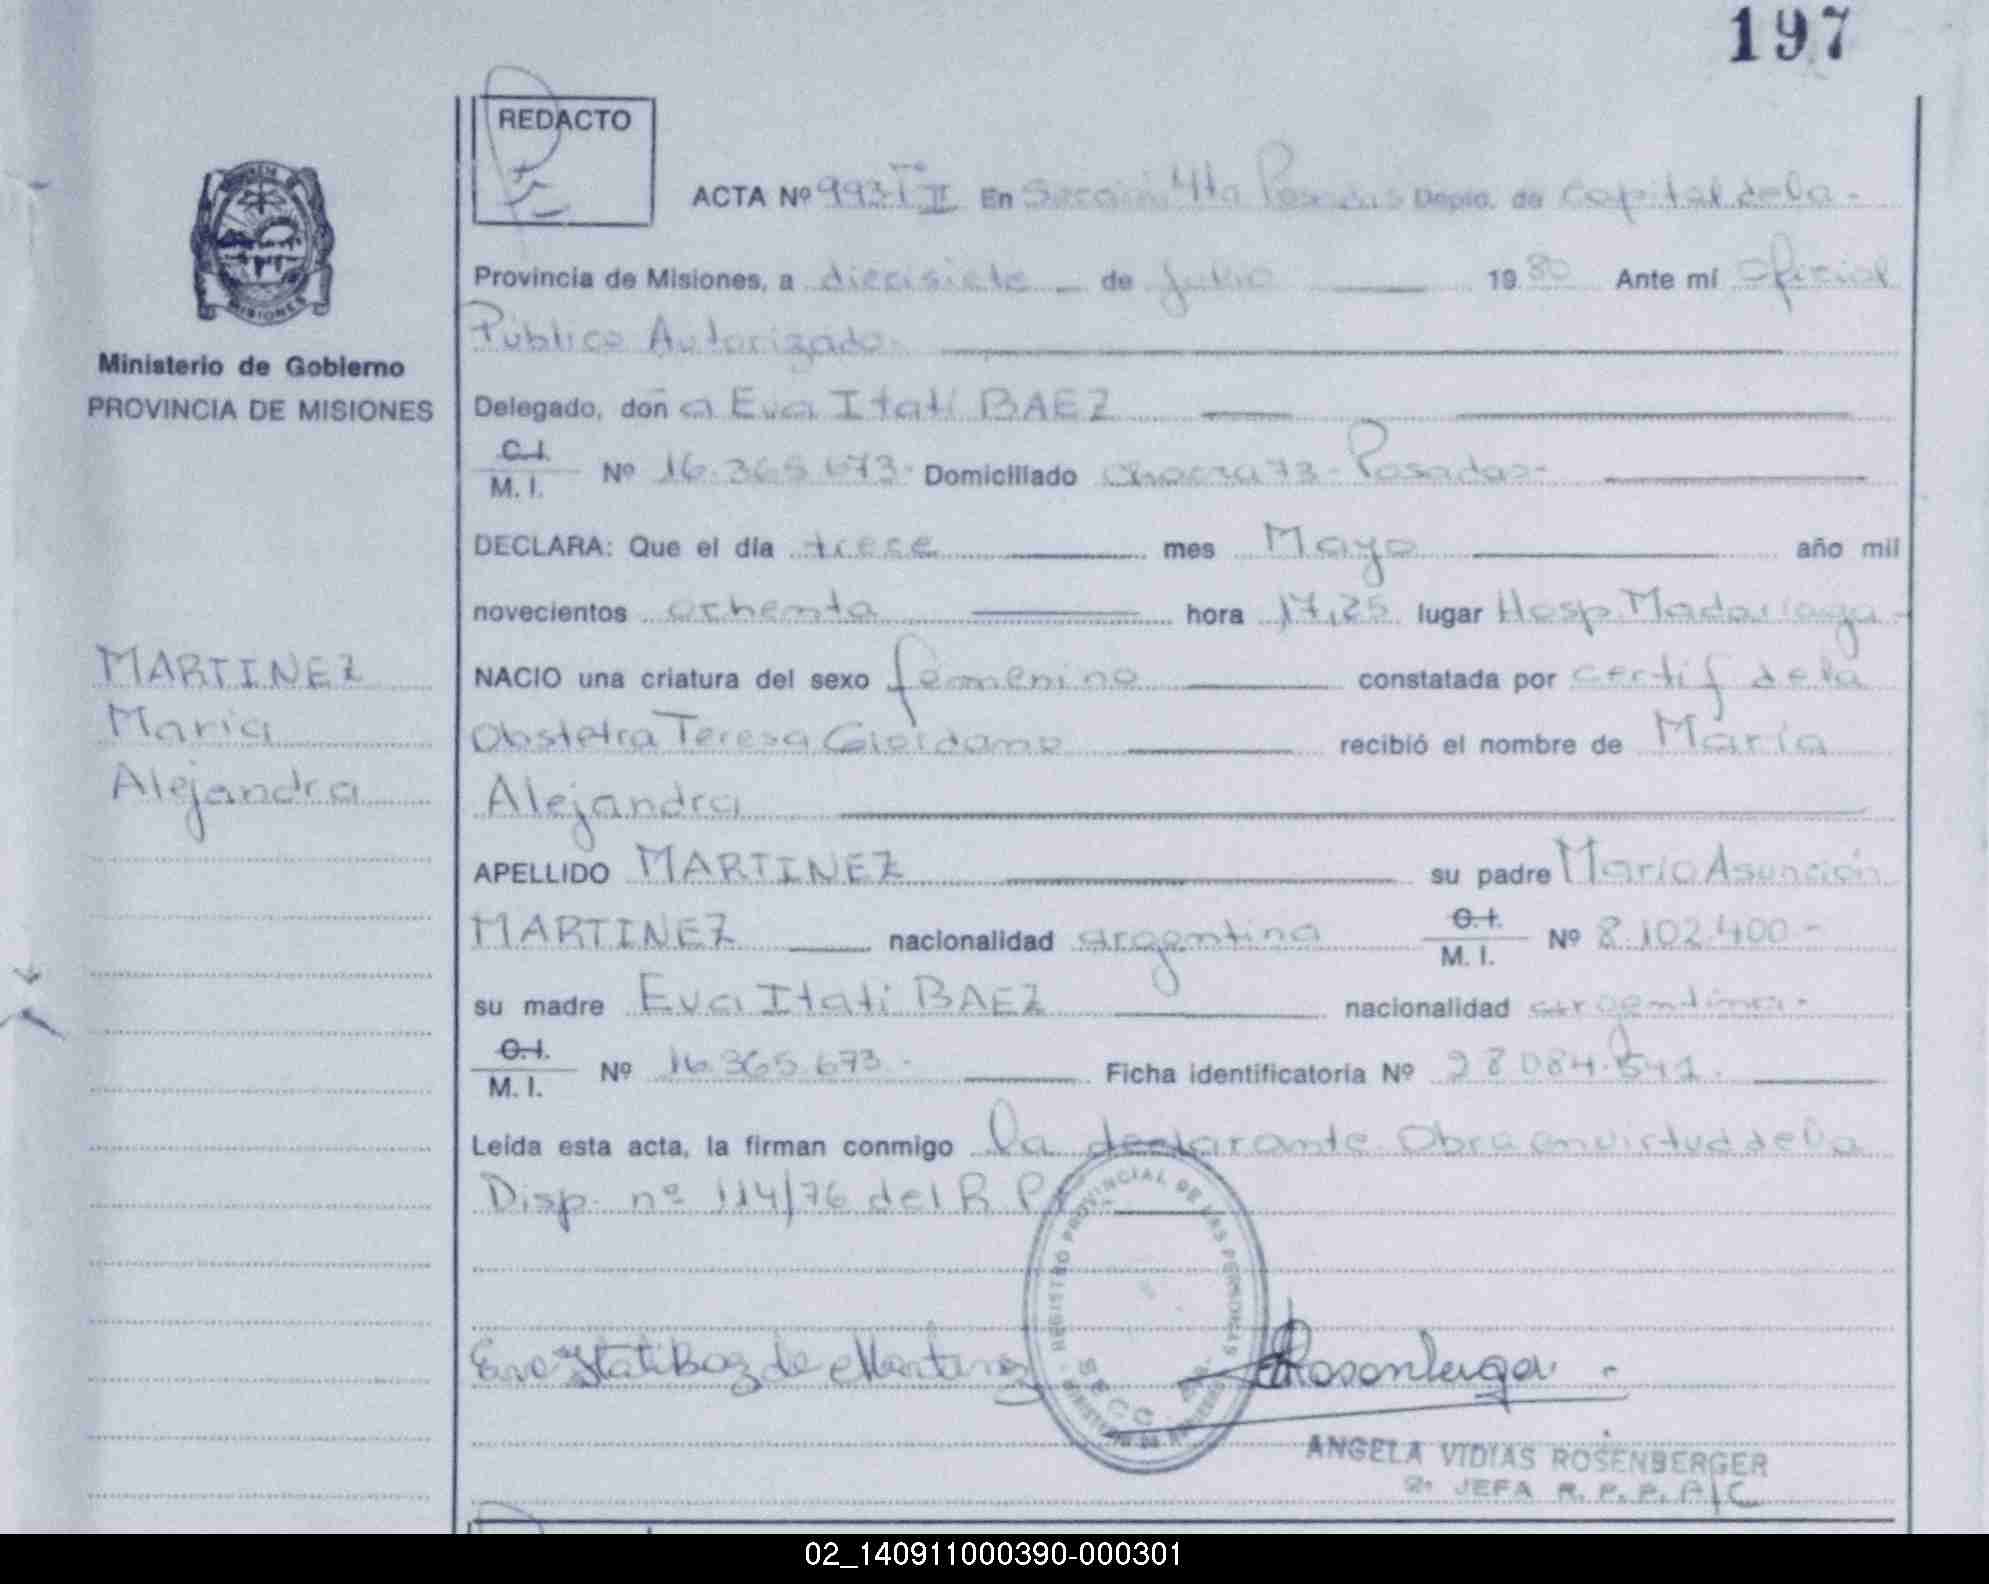 197
REDACTO
ACTA Nº 993 Tº II En Sección 4ta Posadas Depto. de Capital de la -
Provincia de Misiones, a diecisiete de Julio 1980 Ante mí Oficial
Público Autorizado
Ministerio de Gobierno
PROVINCIA DE MISIONES
Delegado, doña Eva Itatí BAEZ
C.I. M. I. Nº 16.365.673.- Domiciliado Chacra 73 - Posadas-
DECLARA: Que el día trece mes Mayo año mil
novecientos ochenta hora 17,25 lugar Hosp. Madariaga -
MARTINEZ
María
Alejandra
NACIO una criatura del sexo femenino constatada por certif de la
Obstetra Teresa Giordano recibió el nombre de María
Alejandra
APELLIDO MARTINEZ su padre Mario Asunción
MARTINEZ nacionalidad argentina C.I. M. I. Nº 8.102.400-
su madre Eva Itatí BAEZ nacionalidad argentina-
C.I. M. I. Nº 16.365.673.- Ficha identificatoria Nº 28.084.541.
Leída esta acta, la firman conmigo la declarante Obra en virtud de la
Disp. nº 114/76 del R.P.
REGISTRO PROVINCIAL DE LAS PERSONAS
SECC.
Eva Itati Baez de Martinez
ANGELA VIDIAS ROSENBERGER
2ª JEFA R. P. P. A/C
02_140911000390-000301